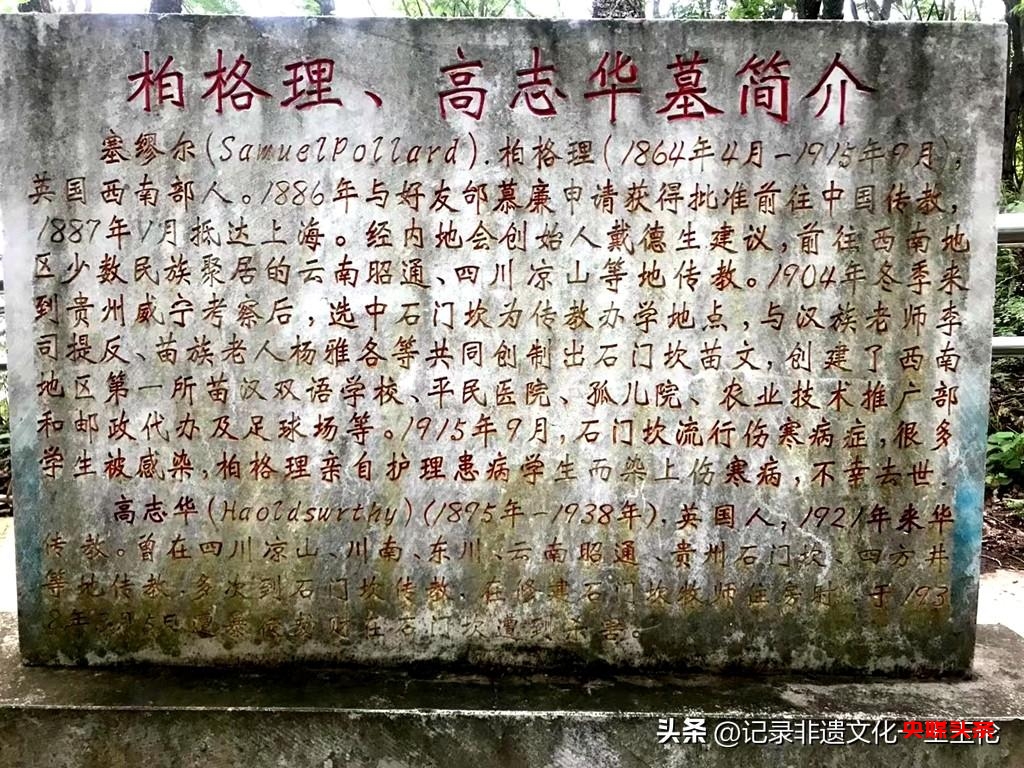 柏格理、高志华墓简介
塞缪尔(SamuelPollard).柏格理(1864年4月-1915年9月),
英国西南部人。1886年与好友邰慕廉申请获得批准前往中国传教,
1887年1月抵达上海。经内地会创始人戴德生建议,前往西南地
区少数民族聚居的云南昭通、四川凉山等地传教。1904年冬季来
到贵州威宁考察后,选中石门坎为传教办学地点,与汉族老师李
司提反、苗族老人杨雅各等共同创制出石门坎苗文,创建了西南
地区第一所苗汉双语学校、平民医院、孤儿院、农业技术推广部
和邮政代办及足球场等。1915年9月,石门坎流行伤寒病症,很多
学生被感染,柏格理亲自护理患病学生而染上伤寒病,不幸去世.
高志华(Haoldsurthy)(1895年-1938年).英国人,1921年来华
传教。曾在四川凉山、川南、东川、云南昭通、贵州石门坎、四方井
等地传教.多次到石门坎传教.在修建石门坎牧师住房时.于193
年 月5日 在石门坎遭到杀害。
头条 @记录非遗文化
央媒头条